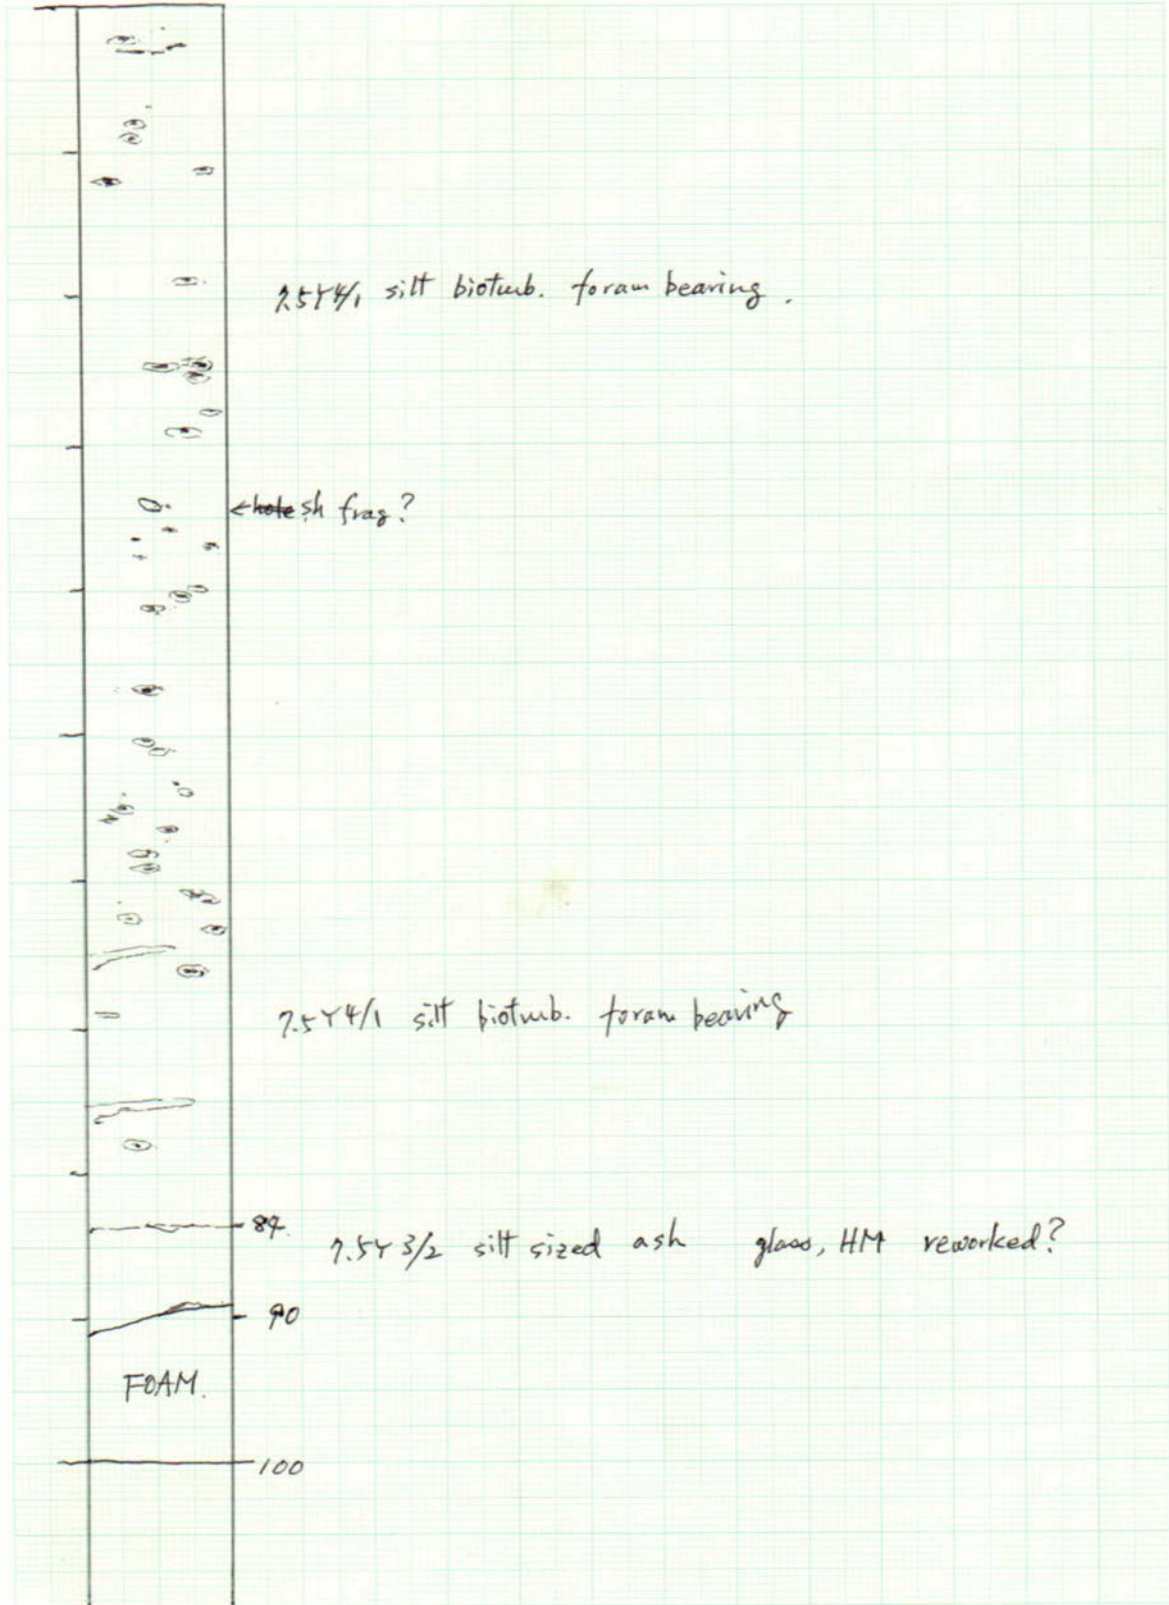 7.5Y4/1 silt bioturb. foram bearing.
←hole sh frag?
7.5Y4/1 silt bioturb. foram bearing
84.
7.5Y 3/2 silt sized ash glass, HM reworked?
90
FOAM.
100